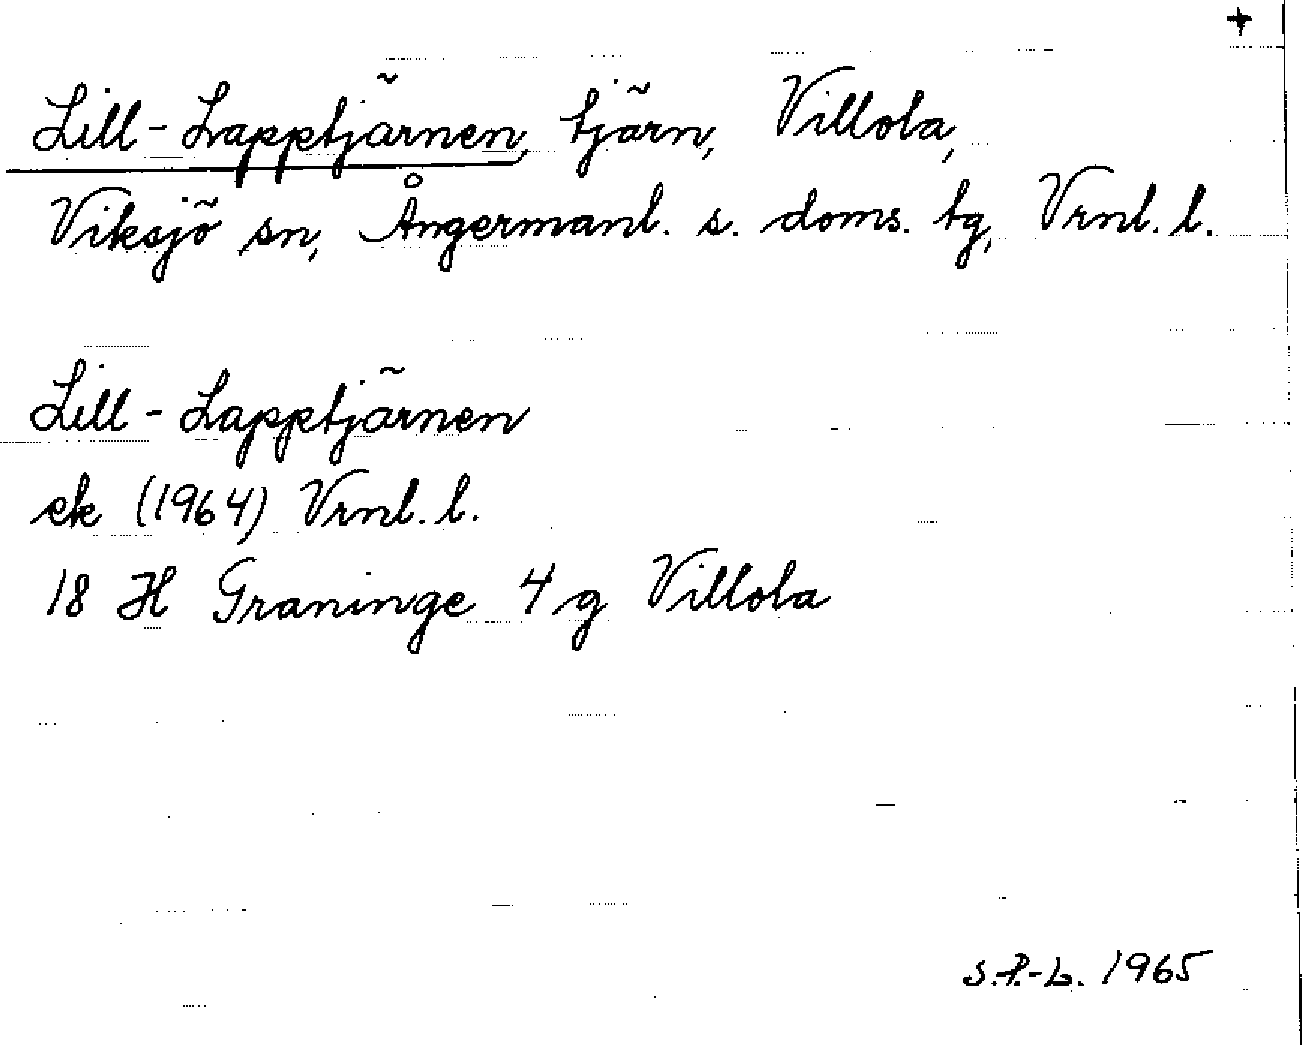 +
Lill-Lapptjärnen, tjärn, Villola,
Viksjö sn, Ångermanl. s. doms. tg, Vrnl. l.
Lill-Lapptjärnen
ek (1964) Vrnl. l.
18 H Graninge 4 g Villola
S.P.-L. 1965